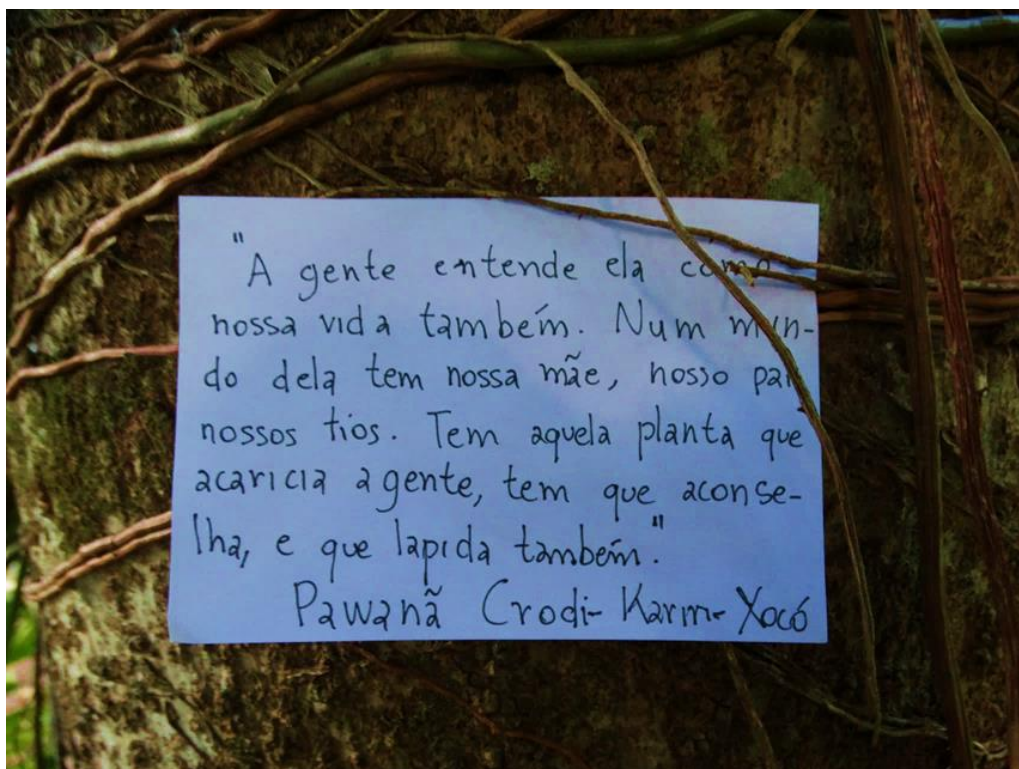 "A gente entende ela como
nossa vida também. Num mun-
do dela tem nossa mãe, nosso pai
nossos tios. Tem aquela planta que
acaricia a gente, tem que aconse-
lha, e que lapida também."
Pawanã Crodi-Karm-Xocó